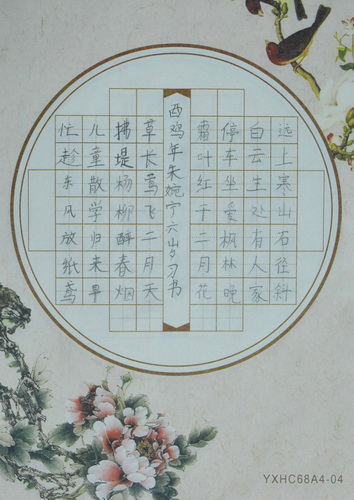 远上寒山石径斜
白云生处有人家
停车坐爱枫林晚
霜叶红于二月花
酉鸡年朱婉宁六岁习书
草长莺飞二月天
拂堤杨柳醉春烟
儿童散学归来早
忙趁东风放纸鸢
YXHC68A4-04